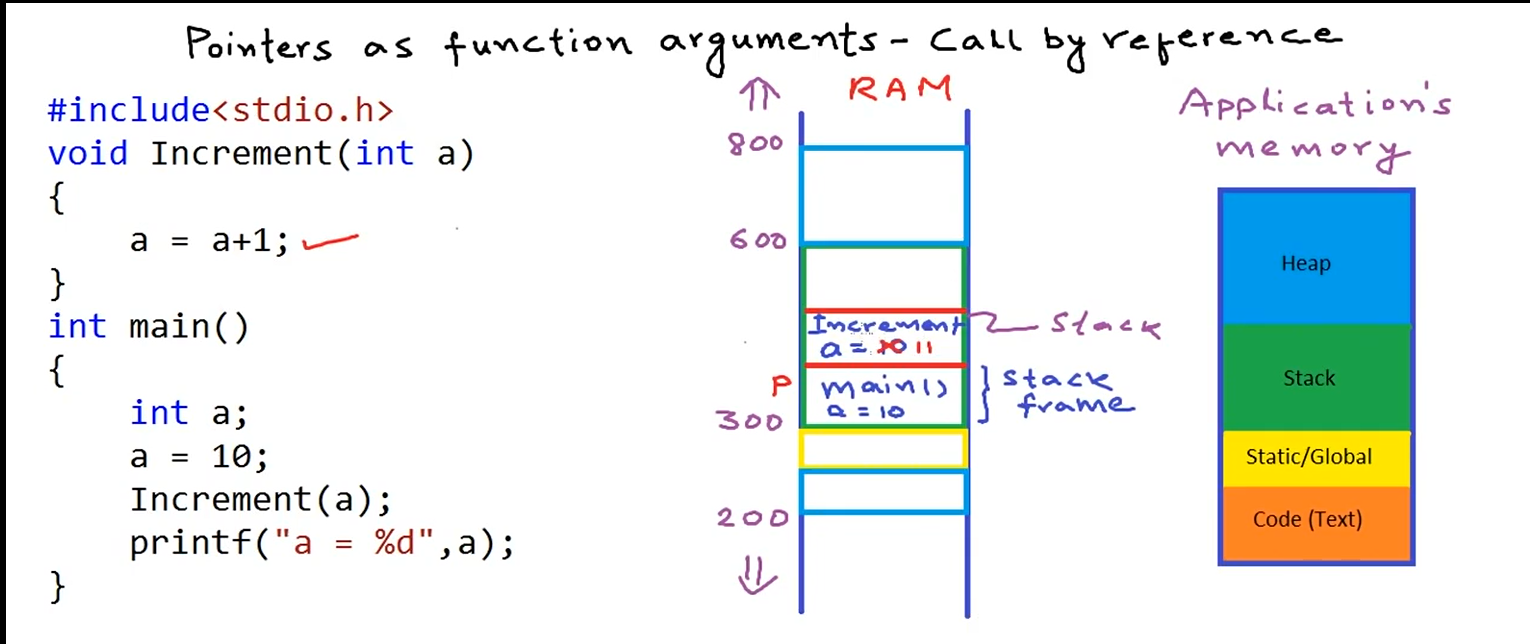 Pointers as function arguments - Call by reference
#include<stdio.h>
void Increment(int a)
{
a = a+1;
}
int main()
{
int a;
a = 10;
Increment(a);
printf("a = %d",a);
}
RAM
800
600
Increment
a = 10 11
Stack
P
main()
a = 10
stack
frame
300
200
Application's
memory
Heap
Stack
Static/Global
Code (Text)